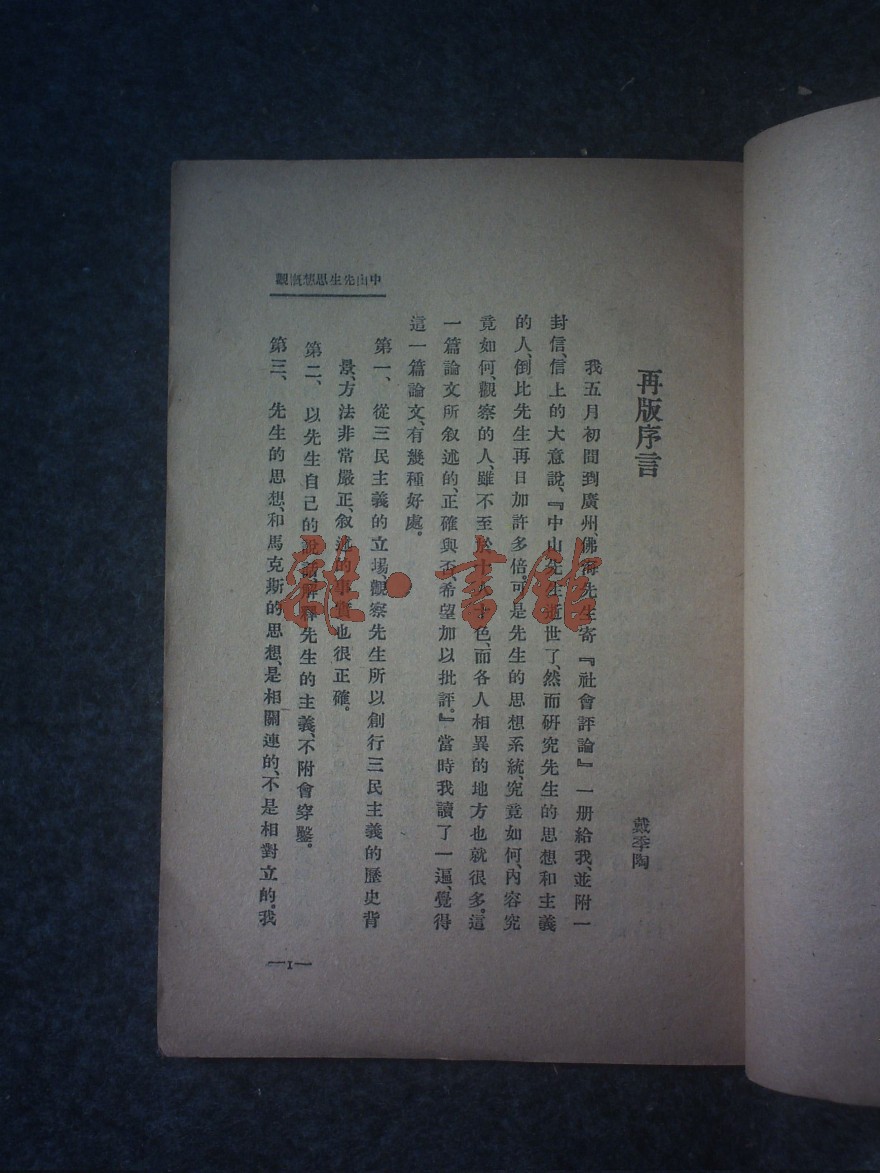 中山先生思想概觀
再版序言
戴季陶
我五月初間到廣州、佛海先生寄『社會評論』一册給我、並附一
封信、信上的大意說、『中山先生逝世了、然而研究先生的思想和主義
的人、倒比先生再日加許多倍。可是先生的思想系統、究竟如何、內容究
竟如何、觀察的人、雖不至於十人十色、而各人相異的地方也就很多。這
一篇論文所叙述的、正確與否、希望加以批評。』當時我讀了一遍、覺得
這一篇論文、有幾種好處。
第一、從三民主義的立場、觀察先生所以創行三民主義的歷史背
景、方法非常嚴正、叙述的事實也很正確。
第二、以先生自己的說話、解釋先生的主義、不附會穿鑿。
第三、先生的思想、和馬克斯的思想、是相關連的、不是相對立的。我
—1—
雜·書館